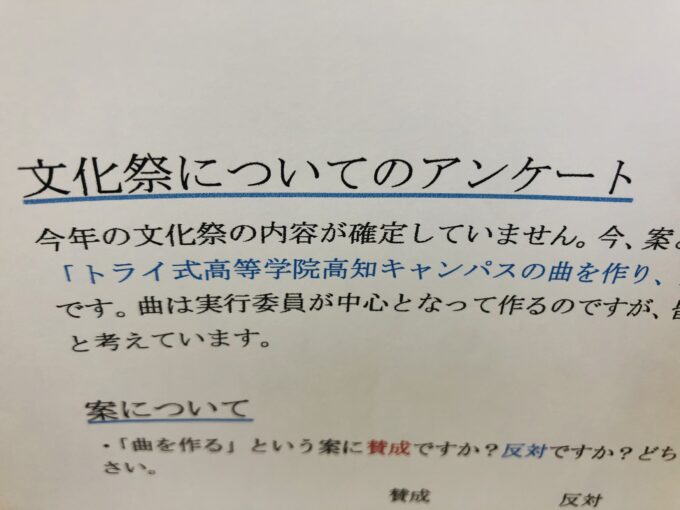 文化祭についてのアンケート
今年の文化祭の内容が確定していません。今、案
「トライ式高等学院高知キャンパスの曲を作り、
です。曲は実行委員が中心となって作るのですが、
と考えています。
案について
・「曲を作る」という案に賛成ですか？反対ですか？どち
さい。
賛成 反対